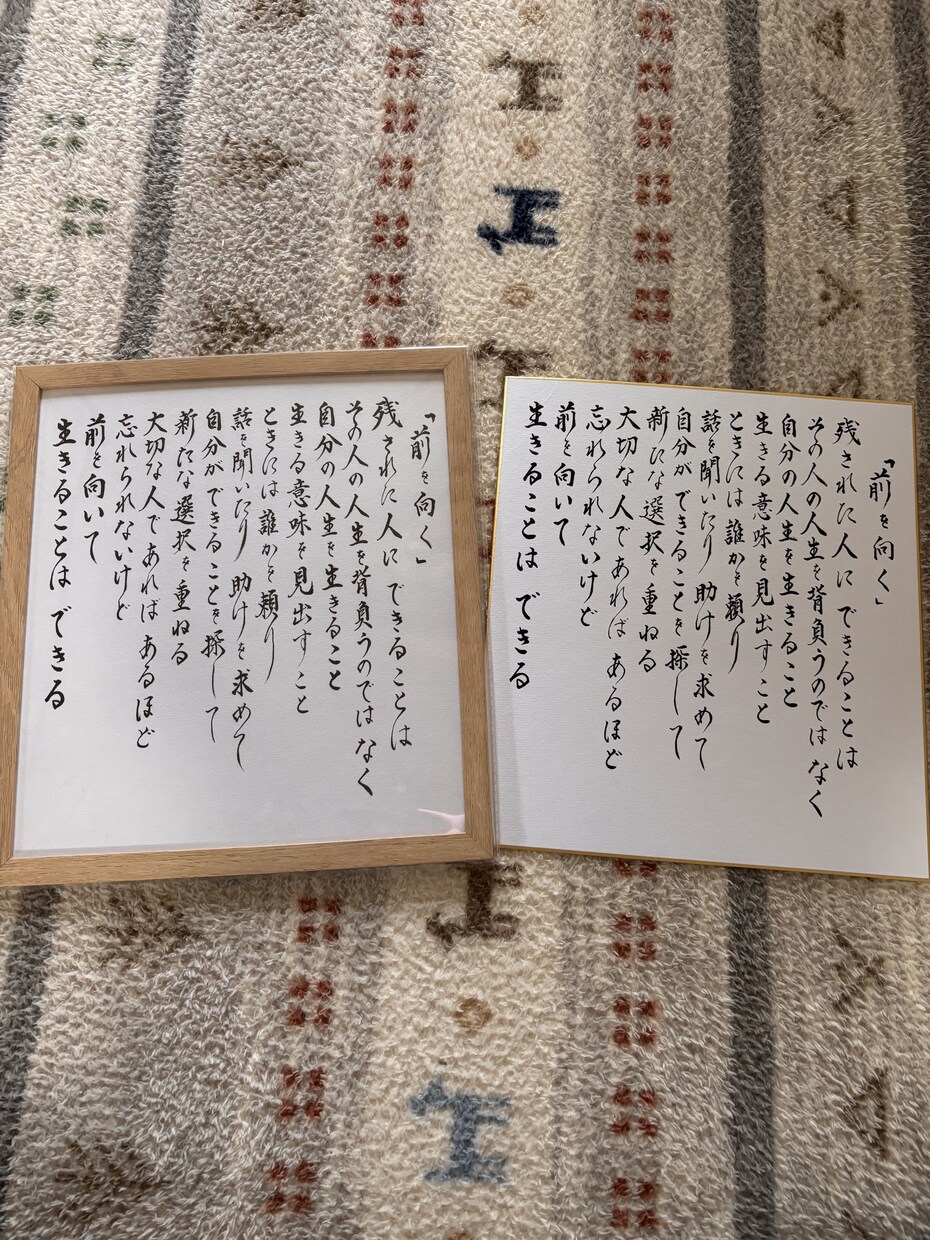 「前を向く」
残された人に できることは
その人の人生を背負うのでは なく
自分の人生を生きること
生きる意味を見出すこと
ときには 誰かを頼り
話を聞いたり 助けを求めて
自分が できることを探して
新たな選択を重ねる
大切な人で あれば あるほど
忘れられないけど
前を向いて
生きることは できる
「前を向く」
残された人に できることは
その人の人生を背負うのでは なく
自分の人生を生きること
生きる意味を見出すこと
ときには 誰かを頼り
話を聞いたり 助けを求めて
自分が できることを探して
新たな選択を重ねる
大切な人で あれば あるほど
忘れられないけど
前を向いて
生きることは できる